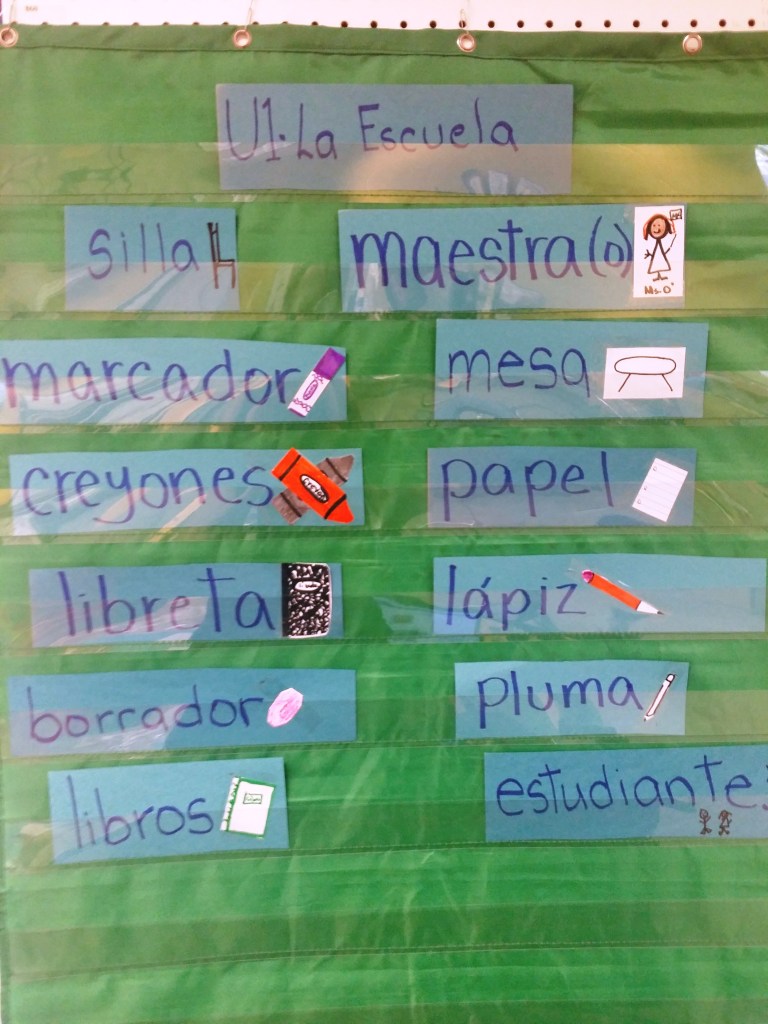 U1. La Escuela
silla
maestra(o)
Ms. O'
marcador
mesa
creyones
papel
libreta
lápiz
borrador
pluma
libros
estudiantes